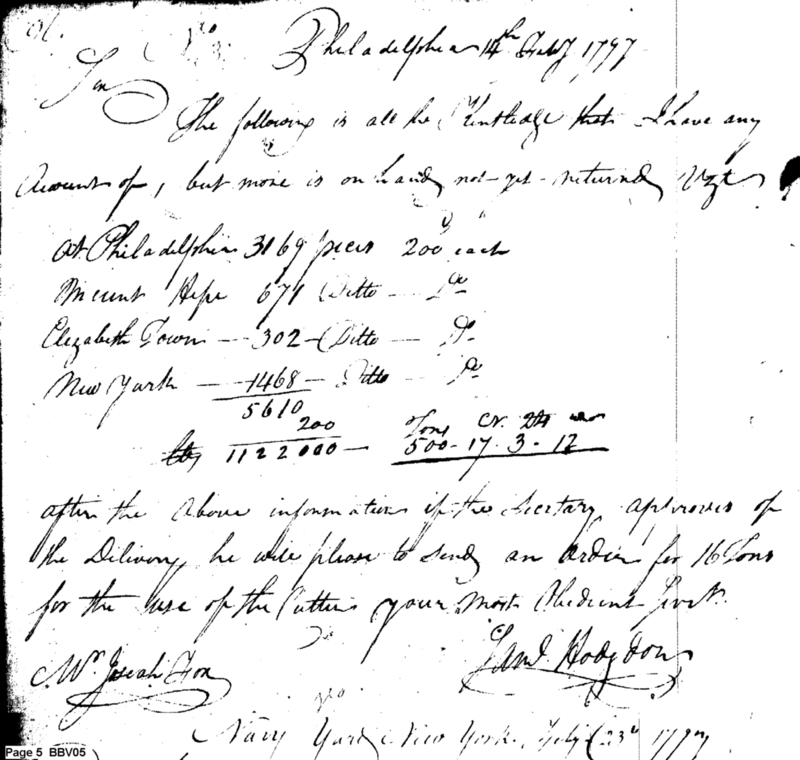 No 3.
Philadelphia 14th Feby 1797
Sir
The following is all the Kentledge that I have any
Account of, but more is on hand, not yet returned, Vizt
At Philadelphia 3169 pieces 200 lb each
Mount Hope 671 Ditto — Do
Elizabeth Town — 302 — Ditto — Do
New York — 1468 — Ditto — Do
5610
200
Tons Cr. Qtr
1122000 — 500 - 17 - 3 - 12
after the Above information if the Secretary approves of
the Delivery, he will please to Send an Order for 16 Tons
for the use of the Cutters your Most Obedient Servt.
Saml Hodgdon
Mr. Josiah Fox
Navy Yard New York, Feby 23d 1797
Page 5 BBV05